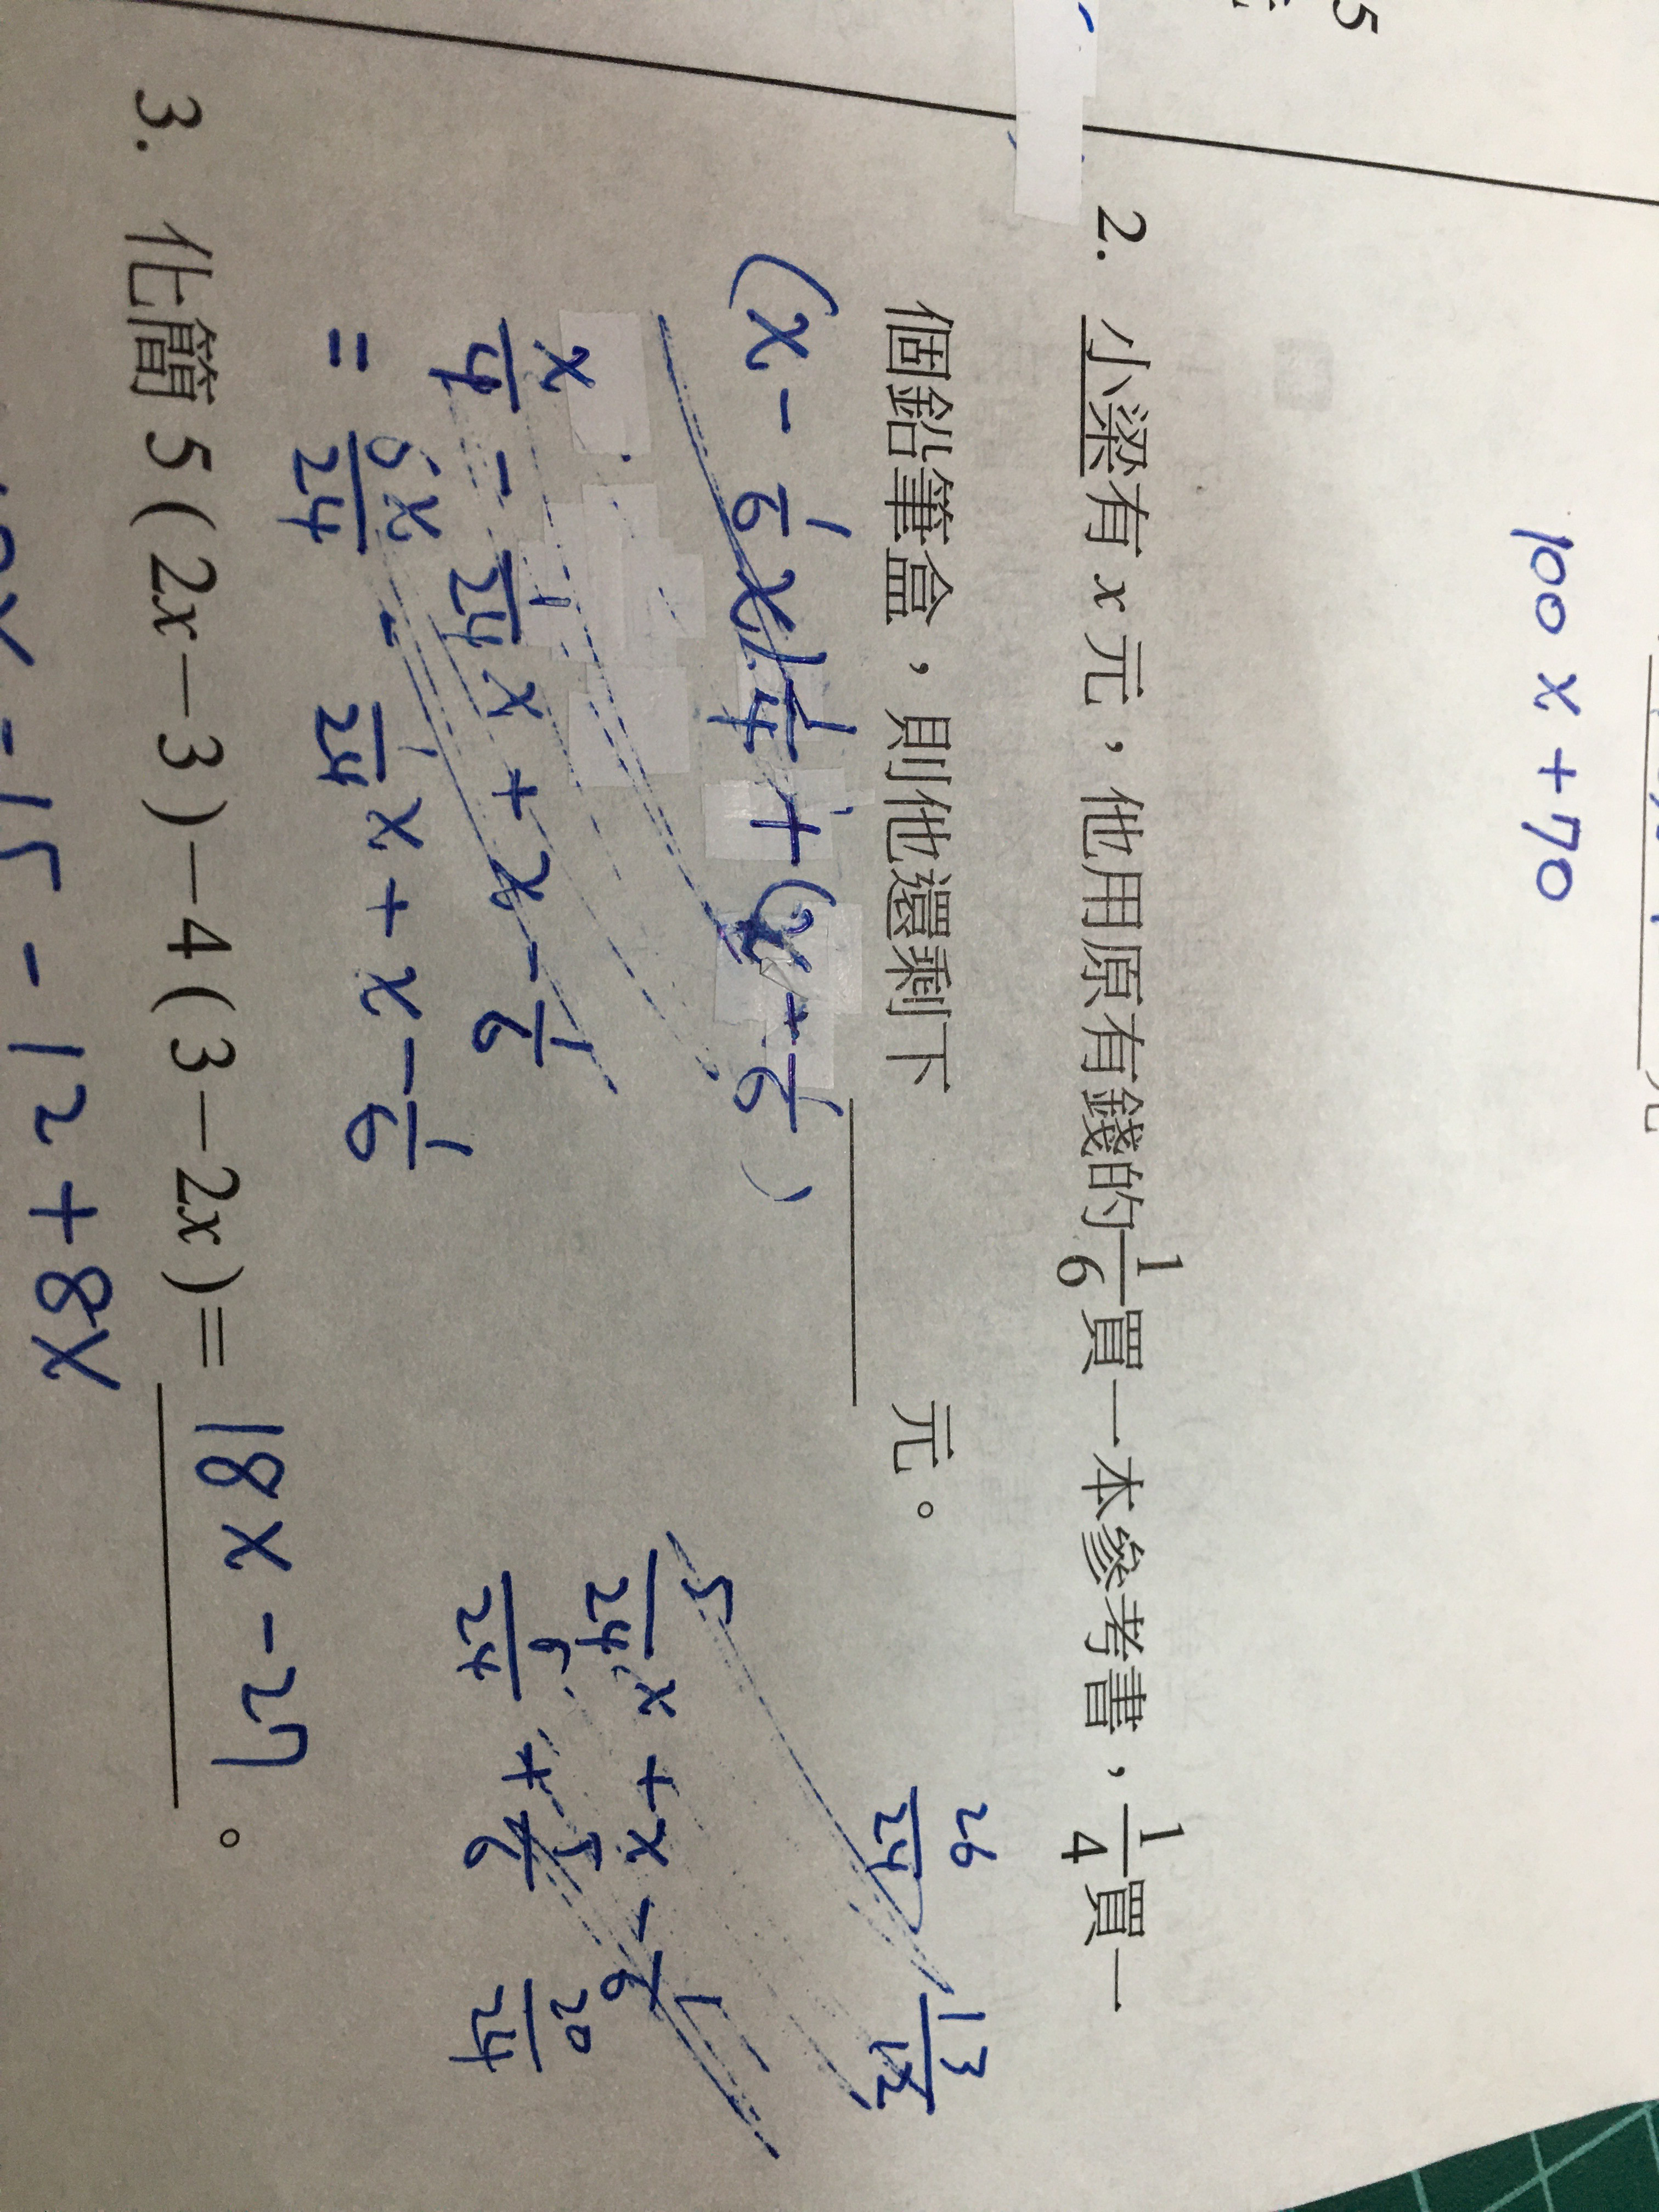 100x+70
2. 小梁有 x 元，他用原有錢的 1/6 買一本參考書，1/4 買一
個鉛筆盒，則他還剩下____元。
(x - 1/6 x) 1/4 + (x - 1/6)
x/4 - 1/24 x + x - 1/6
= 6x/24 - 1/24 x + x - 1/6
26/24 13/12
5/24 x + x - 1/6
20/24
3. 化簡 5(2x-3)-4(3-2x)= 18x-27 。
-15-12+8x